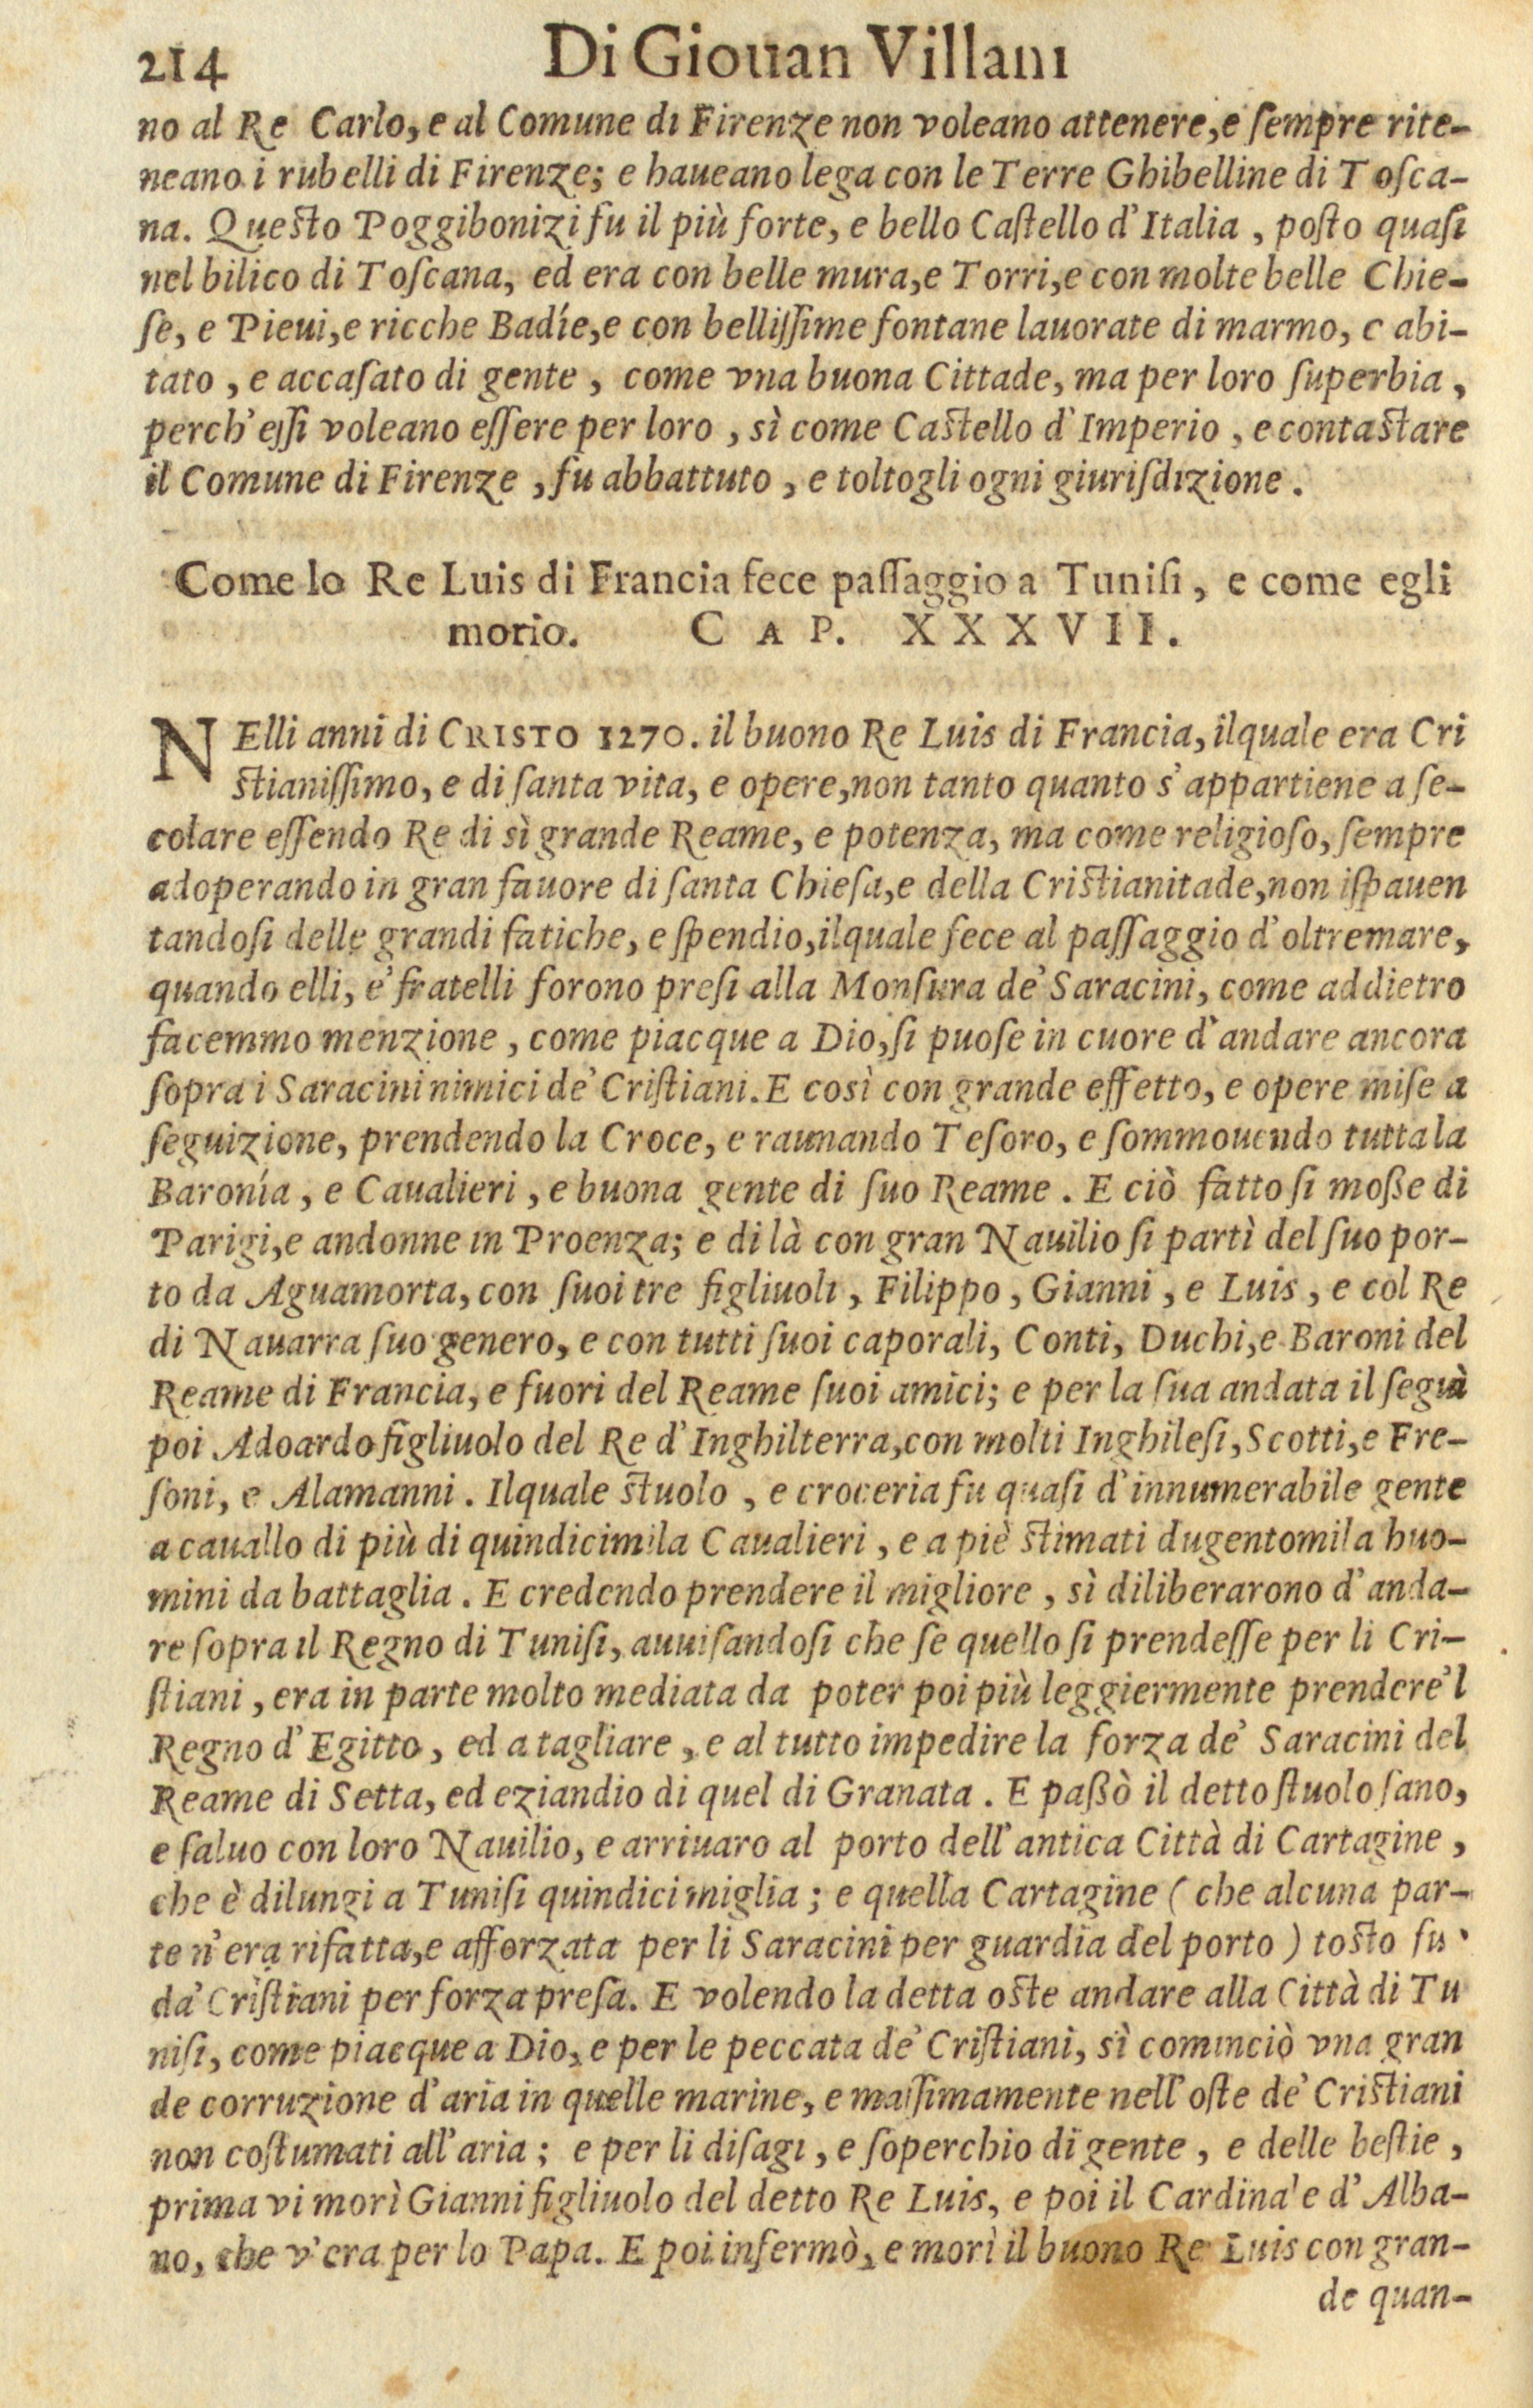 214 Di Giouan Villani
no al Re Carlo, e al Comune di Firenze non voleano attenere, e ſempre rite-
neano i rubelli di Firenze; e haueano lega con le Terre Ghibelline di Toſca-
na. Queſto Poggibonizi fu il più forte, e bello Caſtello d'Italia, poſto quaſi
nel bilico di Toſcana, ed era con belle mura, e Torri, e con molte belle Chie-
ſe, e Pieui, e ricche Badíe, e con belliſſime fontane lauorate di marmo, e abi-
tato, e accaſato di gente, come vna buona Cittade, ma per loro ſuperbia,
perch'eſſi voleano eſſere per loro, sì come Caſtello d'Imperio, e contaſtare
il Comune di Firenze, fu abbattuto, e toltogli ogni giuriſdizione.
Come lo Re Luis di Francia fece paſſaggio a Tuniſi, e come egli
morio. CAP. XXXVII.
NElli anni di CRISTO 1270. il buono Re Luis di Francia, ilquale era Cri
ſtianiſſimo, e di ſanta vita, e opere, non tanto quanto s'appartiene a ſe-
colare eſſendo Re di sì grande Reame, e potenza, ma come religioſo, ſempre
adoperando in gran fauore di ſanta Chieſa, e della Criſtianitade, non iſpauen
tandoſi delle grandi fatiche, e ſpendio, ilquale fece al paſſaggio d'oltremare,
quando elli, e' fratelli forono preſi alla Monſura de' Saracini, come addietro
facemmo menzione, come piacque a Dio, ſi puoſe in cuore d'andare ancora
ſopra i Saracini nimici de' Criſtiani. E così con grande effetto, e opere miſe a
ſeguizione, prendendo la Croce, e raunando Teſoro, e ſommouendo tutta la
Baronía, e Caualieri, e buona gente di ſuo Reame. E ciò fatto ſi moße di
Parigi, e andonne in Proenza; e di là con gran Nauilio ſi partì del ſuo por-
to da Aguamorta, con ſuoi tre figliuoli, Filippo, Gianni, e Luis, e col Re
di Nauarra ſuo genero, e con tutti ſuoi caporali, Conti, Duchi, e Baroni del
Reame di Francia, e fuori del Reame ſuoi amici; e per la ſua andata il ſeguì
poi Adoardo figliuolo del Re d'Inghilterra, con molti Inghileſi, Scotti, e Fre-
ſoni, e Alamanni. Ilquale ſtuolo, e croceria fu quaſi d'innumerabile gente
a cauallo di più di quindicimila Caualieri, e a piè ſtimati dugentomila huo-
mini da battaglia. E credendo prendere il migliore, sì diliberarono d'anda-
re ſopra il Regno di Tuniſi, auuiſandoſi che ſe quello ſi prendeſſe per li Cri-
ſtiani, era in parte molto mediata da poter poi più leggiermente prendere'l
Regno d'Egitto, ed a tagliare, e al tutto impedire la forza de' Saracini del
Reame di Setta, ed eziandio di quel di Granata. E paßò il detto ſtuolo ſano,
e ſaluo con loro Nauilio, e arriuaro al porto dell'antica Città di Cartagine,
che è dilungi a Tuniſi quindici miglia; e quella Cartagine (che alcuna par-
te n'era rifatta, e afforzata per li Saracini per guardia del porto) toſto fu
da' Criſtiani per forza preſa. E volendo la detta oſte andare alla Città di Tu
niſi, come piacque a Dio, e per le peccata de' Criſtiani, sì cominciò vna gran
de corruzione d'aria in quelle marine, e maſſimamente nell'oſte de' Criſtiani
non coſtumati all'aria; e per li diſagi, e ſoperchio di gente, e delle beſtie,
prima vi morì Gianni figliuolo del detto Re Luis, e poi il Cardinale d'Alba-
no, che v'era per lo Papa. E poi infermò, e morì il buono Re Luis con gran-
de quan-